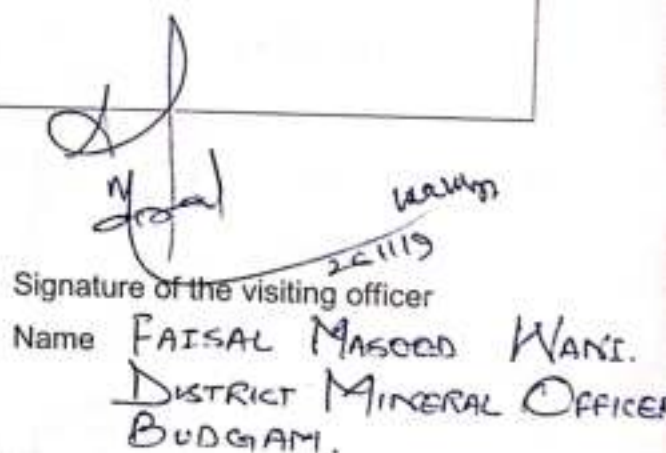 Signature of the visiting officer
Name FAISAL MASOOD WANI.
DISTRICT MINERAL OFFICER
BUDGAM.